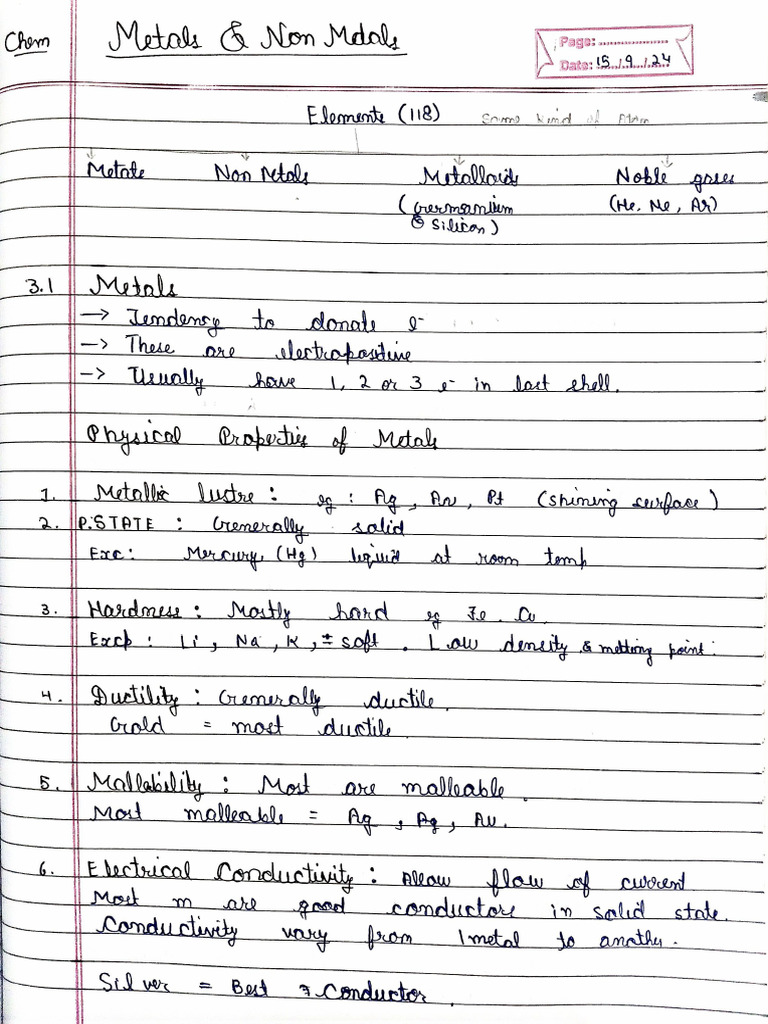 Chem
Metals & Non Metals
Page: ...................
Date: 15/9/24
Elements (118) Same kind of Atom
Metals Non Metals Metalloids Noble gases
(Germanium (He, Ne, Ar)
& Silicon)
3.1 Metals
→ Tendency to donate e⁻
→ These are electropositive
→ Usually have 1, 2 or 3 e⁻ in last shell.
Physical Properties of Metals
1. Metallic lustre : eg : Ag, Au, Pt (shining surface)
2. P.STATE : Generally solid
Exc: Mercury, (Hg) liquid at room temp
3. Hardness : Mostly hard eg Fe. Cu.
Excp : Li, Na, K, = soft. Low density & melting point:
4. Ductility : Generally ductile.
Gold = most ductile.
5. Mallability : Most are malleable.
Most malleable = Ag, Ag, Au.
6. Electrical Conductivity : Allow flow of current
Most m are good conductors in solid state.
Conductivity vary from 1 metal to anather.
Silver = Best Conductor.